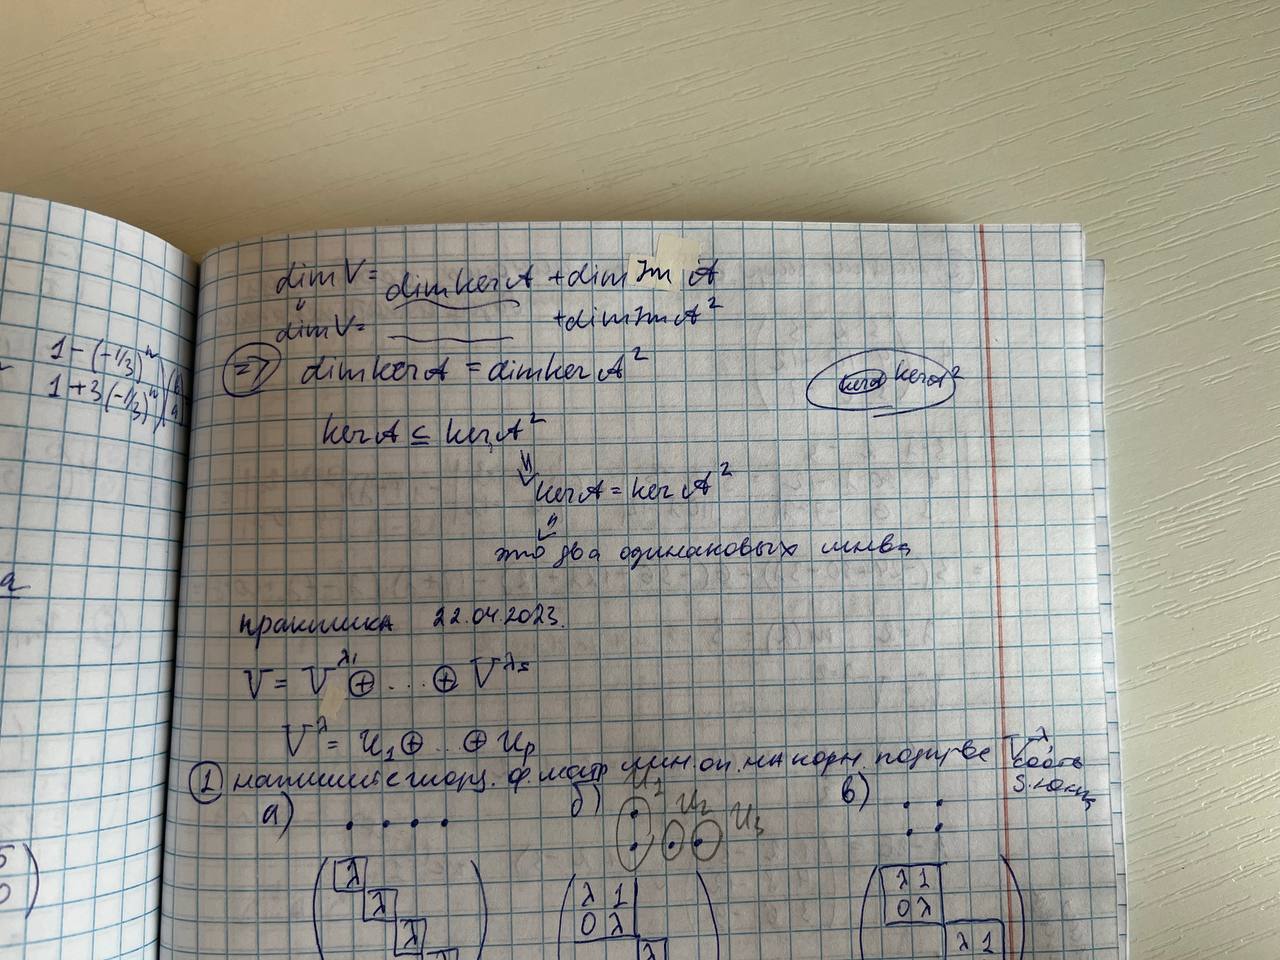 1-(-1/3)^n
1+3(-1/3)^n
dim V = dim ker A + dim Im A
dim V = + dim Im A^2
=> dim ker A = dim ker A^2
ker A ker A^2
ker A ⊆ ker A^2
⇓
ker A = ker A^2
это два одинаковых мнва
практика 22.04.2023.
V = V^λ1 ⊕ ... ⊕ V^λs
V^λ = U1 ⊕ ... ⊕ Up
① напишите жорд. ф. матр лин. оп. на корн. подпр-ве V^λ,
а) б) в)
U1 U2 U3
λ
λ
λ
λ 1
0 λ
λ
λ 1
0 λ
λ 1